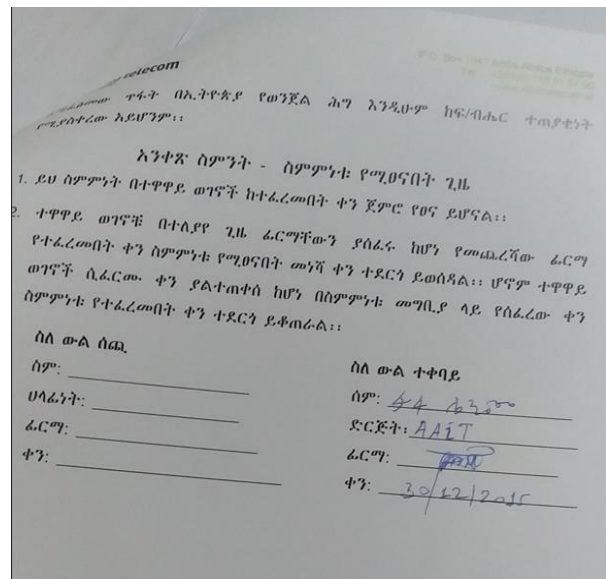 telecom
P.O. Box 1047 Addis Ababa Ethiopia
ጥፋት በኢትዮጵያ የወንጀል ሕግ እንዲሁም ከፍ/ብሔር ተጠያቂነት
የሚያስቀረው አይሆንም፡፡
አንቀጽ ስምንት - ስምምነቱ የሚፀናበት ጊዜ
1. ይህ ስምምነት በተዋዋይ ወገኖች ከተፈረመበት ቀን ጀምሮ የፀና ይሆናል፡፡
2. ተዋዋይ ወገኖቹ በተለያየ ጊዜ ፊርማቸውን ያሰፈሩ ከሆነ የመጨረሻው ፊርማ
የተፈረመበት ቀን ስምምነቱ የሚፀናበት መነሻ ቀን ተደርጎ ይወሰዳል፡፡ ሆኖም ተዋዋይ
ወገኖች ሲፈርሙ ቀን ያልተጠቀሰ ከሆነ በስምምነቱ መግቢያ ላይ የሰፈረው ቀን
ስምምነቱ የተፈረመበት ቀን ተደርጎ ይቆጠራል፡፡
ስለ ውል ሰጪ
ስም:
ሀላፊነት:
ፊርማ:
ቀን:
ስለ ውል ተቀባይ
ስም:
ድርጅት: AAiT
ፊርማ:
ቀን: 30/12/2015